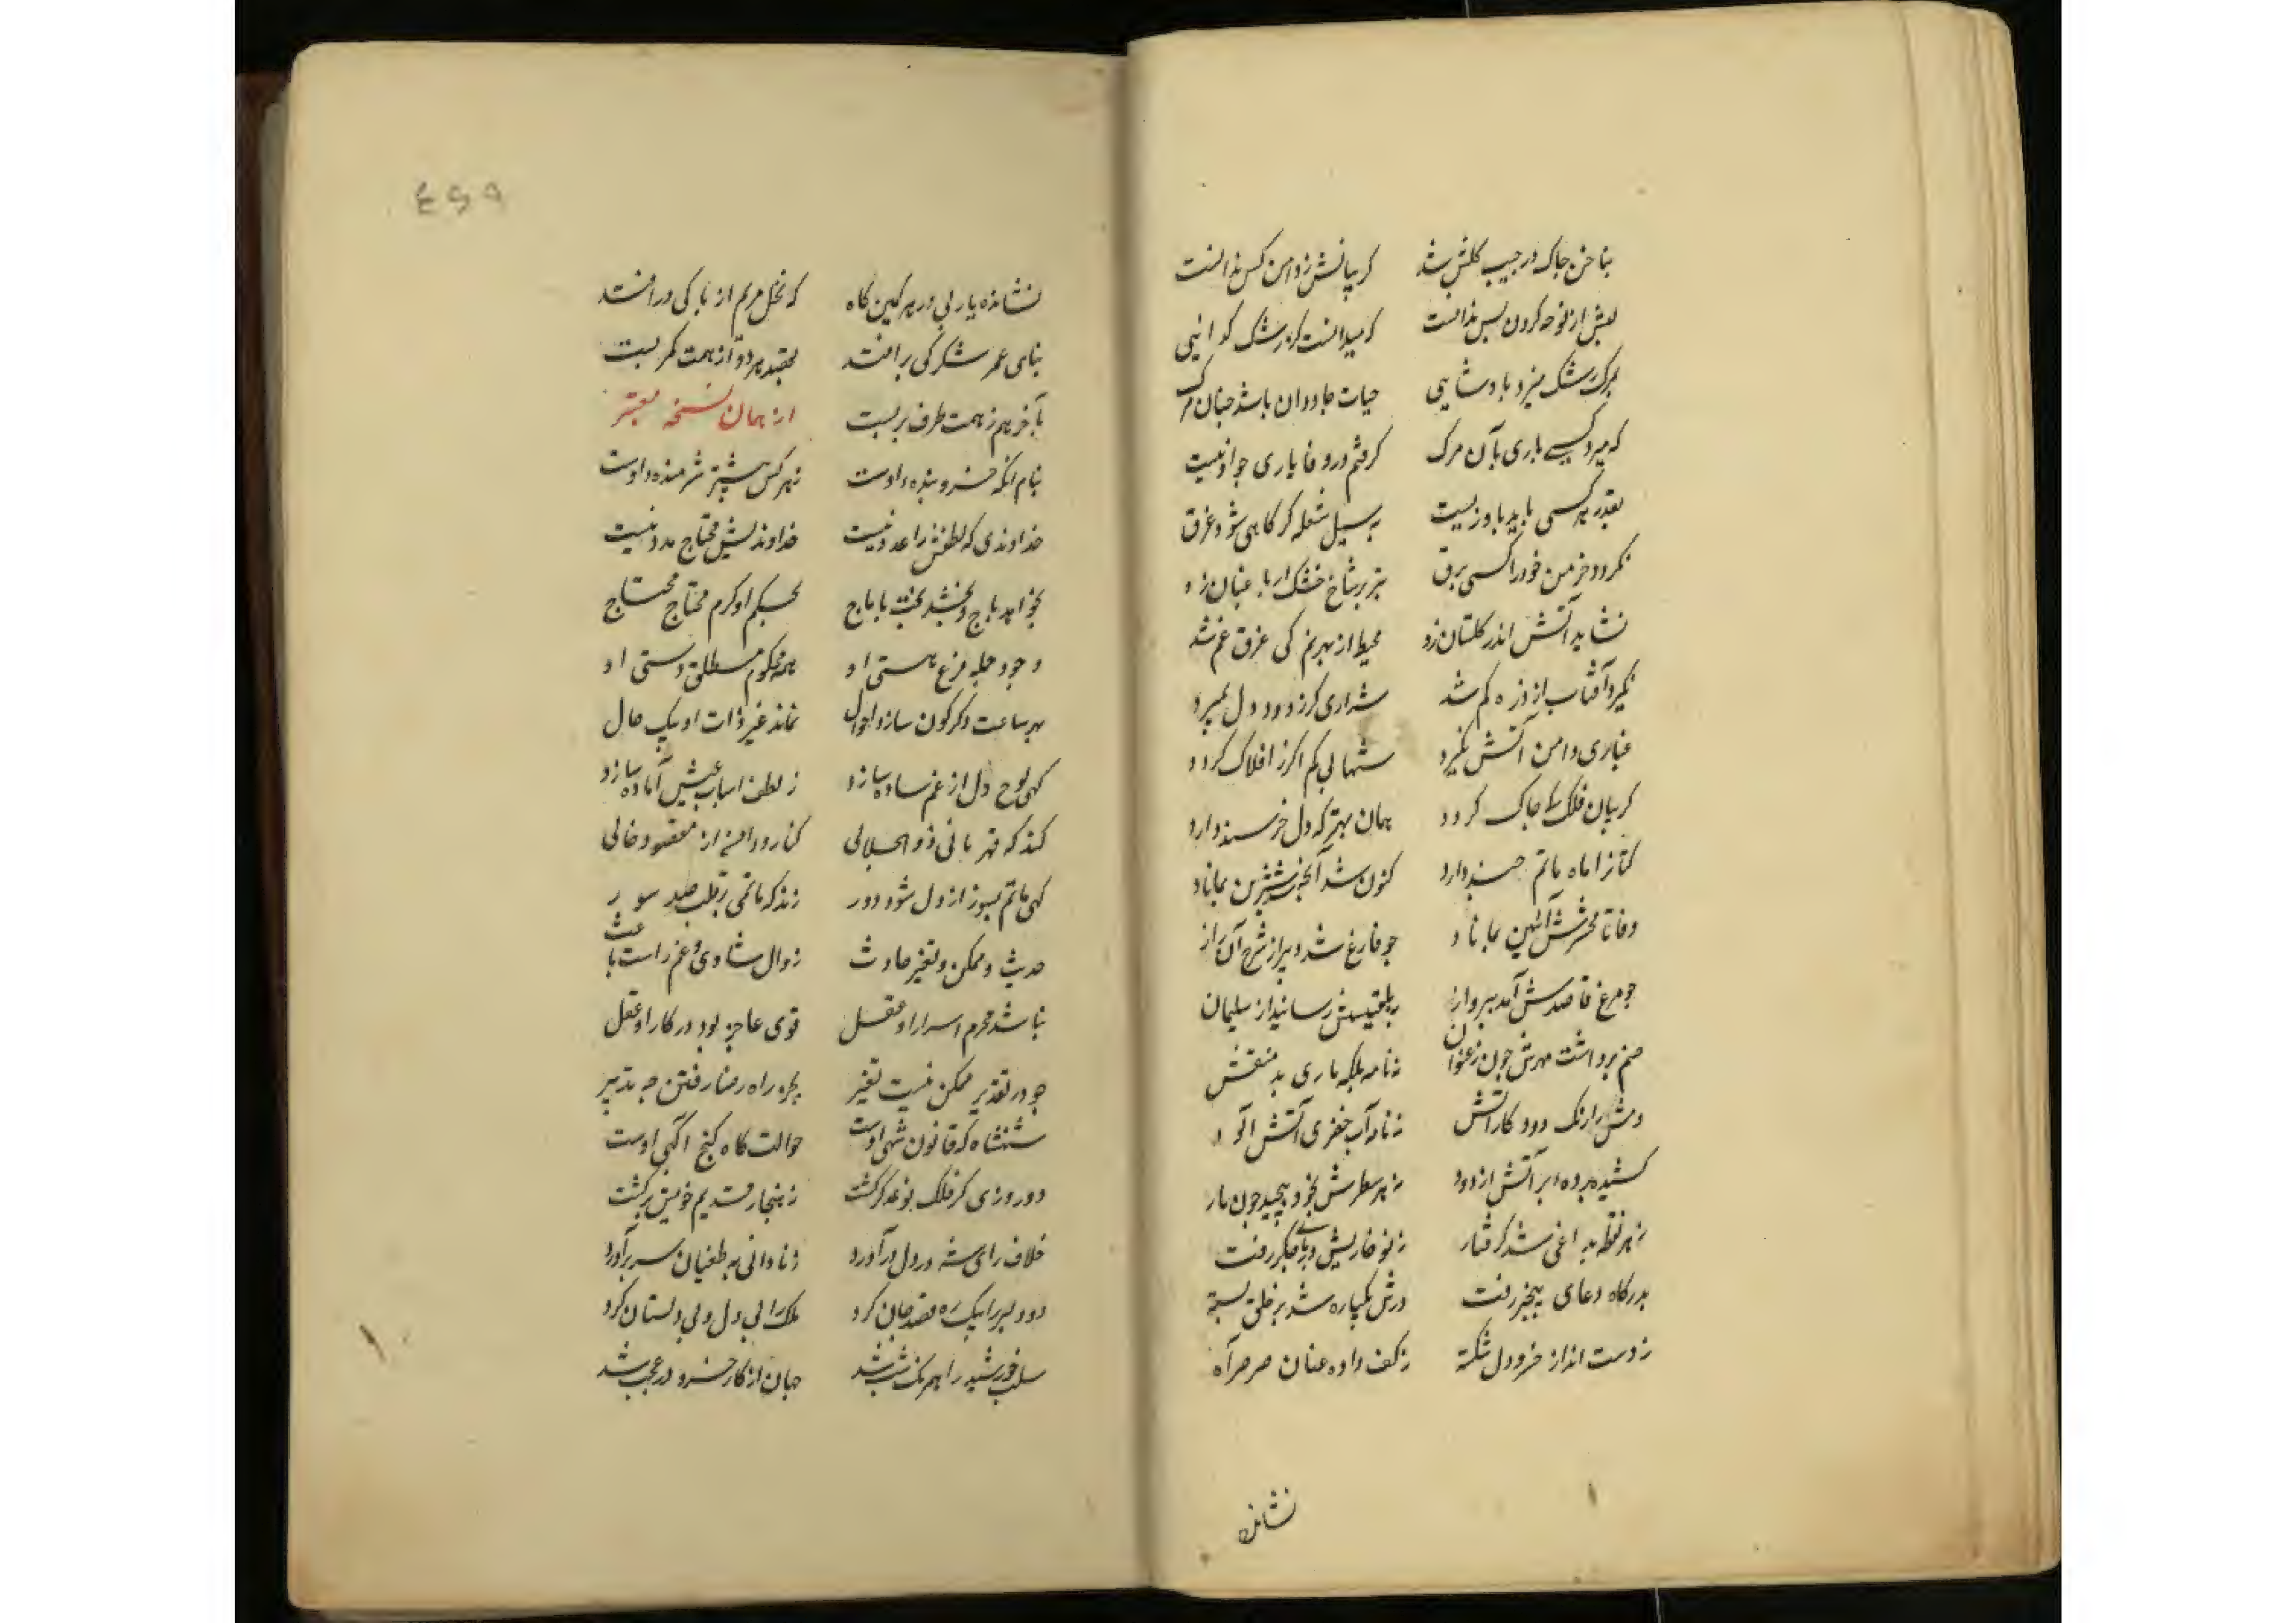 بناخن چاک در جیب کلش شد کریبانش ز دامن کس ندانست
لبش از نوحه کردن بس ندانست که میدانست کز رشک کدایی
بمرک رشک میرد بادشاهی حیات جاودان باشد چنان مرک
که میرد کسی باری بآن مرک کرفتم در وفا یاری جو او نیست
بقدر هر کسی باید باو زیست به سیل شعله کر کاهی شود غرق
نکردد خرمن خود را کسی برق تبر بر شاخ خشک ار باغبان زد
نشاید آتش اندر کلستان زد محیط از بهر نم کی غرق غم شد
نمیرد آفتاب از ذره کم شد شراری کر ز دود دل بمیرد
غباری دامن آتش نکیرد شهابی کم اکر ز افلاک کردد
کریبان فلک کی چاک کردد همان بهتر که دل خرسند دارد
کتانرا ماه ماتم چند دارد کنون شد آنچه شد شیرین بماناد
وفا تا محشرش آئین بماناد جو فارغ شد دبیر از شرح آن راز
جو مرغ قاصدش آمد بپرواز به بلقیسش رسانید از سلیمان
صنم برداشت مهرش چون ز عنوان نه نامه بلکه ماری بد منقش
دمش را رنک دود کار آتش نه نامه آب خضری آتش آلود
کشیده پرده ابر آتش از دود ز هر سطرش بخود پیچید چون مار
ز هر نقطه بداغی شد کرفتار ز نو خاریش در پای جکر رفت
بدرکاه دعای بیخبر رفت درش یکباره شد بر خلق بسته
ز دست انداز خسرو دل شکسته ز کف داده عنان صرصر آه
نشانده
نشانده یاربی در هر کمین کاه که نخل مریم از پا کی درافتد
بنای عمر شکر کی برافتد بقصد هر دو از همت کمر بست
بآخر هم ز همت طرف بربست از همان نسخه معتبر
بنام آنکه خسرو بنده اوست ز هر کس بیشتر شرمنده اوست
خداوندی که لطفش را عدد نیست خداوندیش محتاج مدد نیست
نخواهد باج و بخشد تخت با تاج بحکم او کرم محتاج محتاج
وجود جمله فرع هستی او همه محکوم مطلق دستی او
بهر ساعت دکرکون سازد احوال نماند غیر ذات او بیک حال
کهی لوح دل از غم ساده سازد ز لطف اسباب عیش آماده سازد
کند که قهرمانی ذوالجلالی کنار و دامن از مقصود خالی
کهی ماتم بسوز از دل شود دور زند که ماتمی بر قلب صد سور
حدیث و ممکن و تغیر حادث زوال شادی و غم راست باعث
نباشد محرم اسرار او عقل قوی عاجز بود در کار او عقل
جو در تقدیر ممکن نیست تغیر بجز راه رضا رفتن چه تدبیر
شهنشاه که قانون شهی اوست حوالت کاه کنج آکهی اوست
دو روزی کر فلک نوعی دکر کشت ز هنجار قدیم خویش برکشت
خلاف رای شه در دل درآورد ز نادانی به طغیان سر برآورد
دو دلبر را یک ره قصد جان کرد ملک را بی دل و بی دلستان کرد
سلب خورشید را همرنک شب شد جهان از کار خسرو در عجب شد